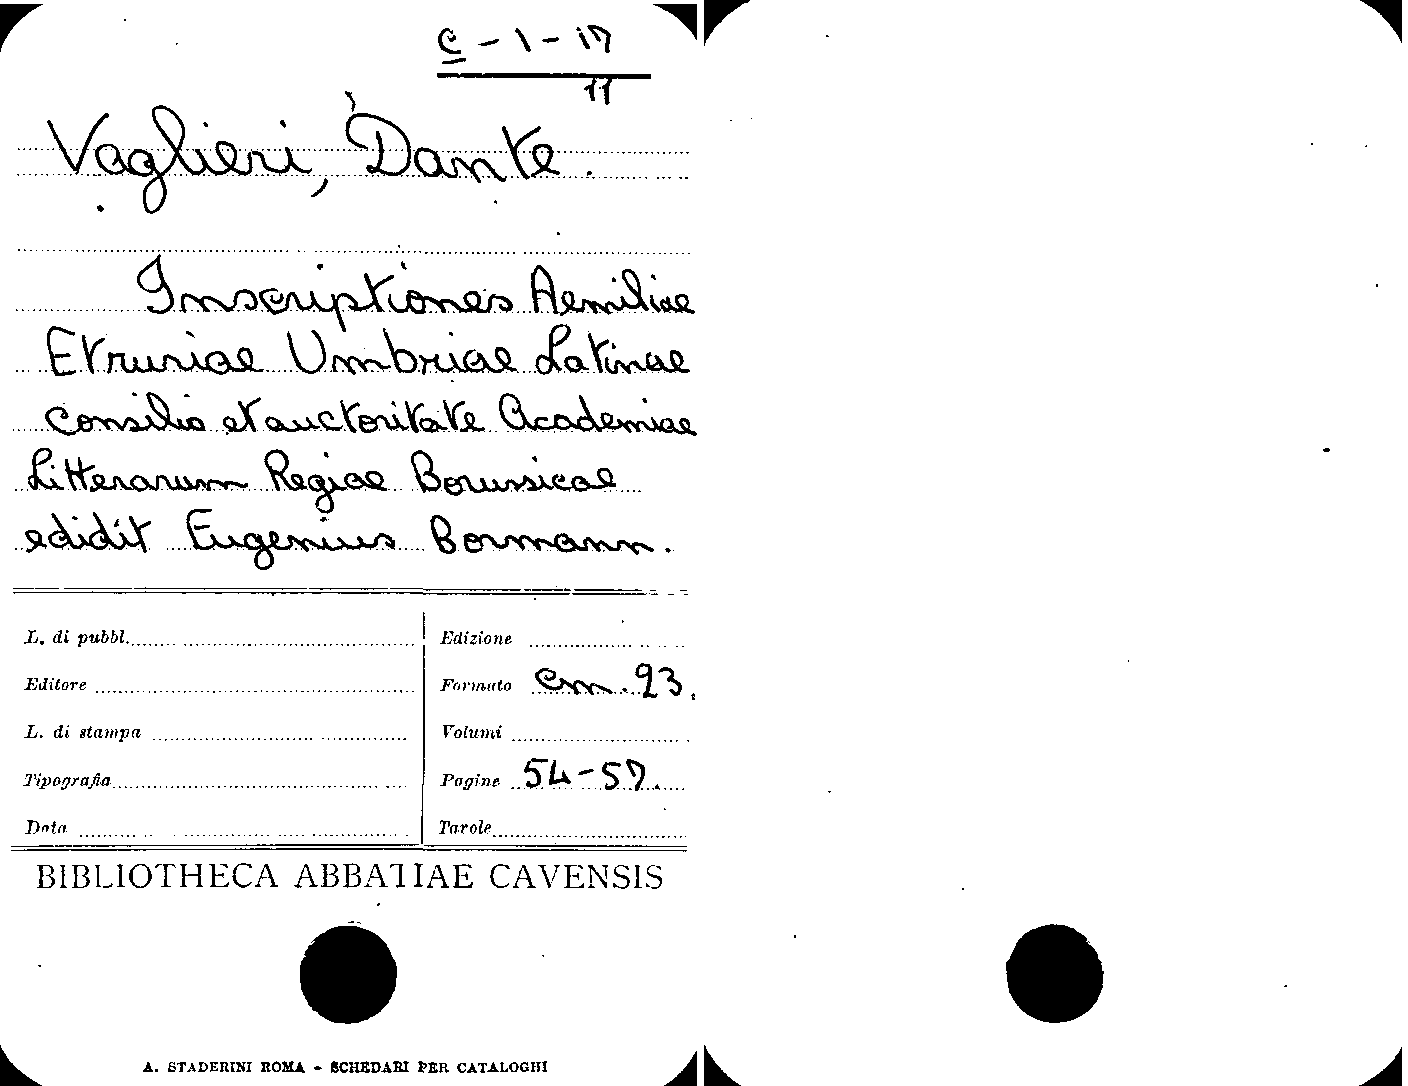 C - 1 - 17
11
Vaglieri, Dante.
Inscriptiones Aemiliae
Etruriae Umbriae Latinae
consilio et auctoritate Academiae
Litterarum Regiae Borussicae
edidit Eugenius Bormann.
L. di pubbl.
Edizione
Editore
Formato cm. 23.
L. di stampa
Volumi
Tipografia
Pagine 54-57.
Data
Tavole
BIBLIOTHECA ABBATIAE CAVENSIS
A. STADERINI ROMA - SCHEDARI PER CATALOGHI